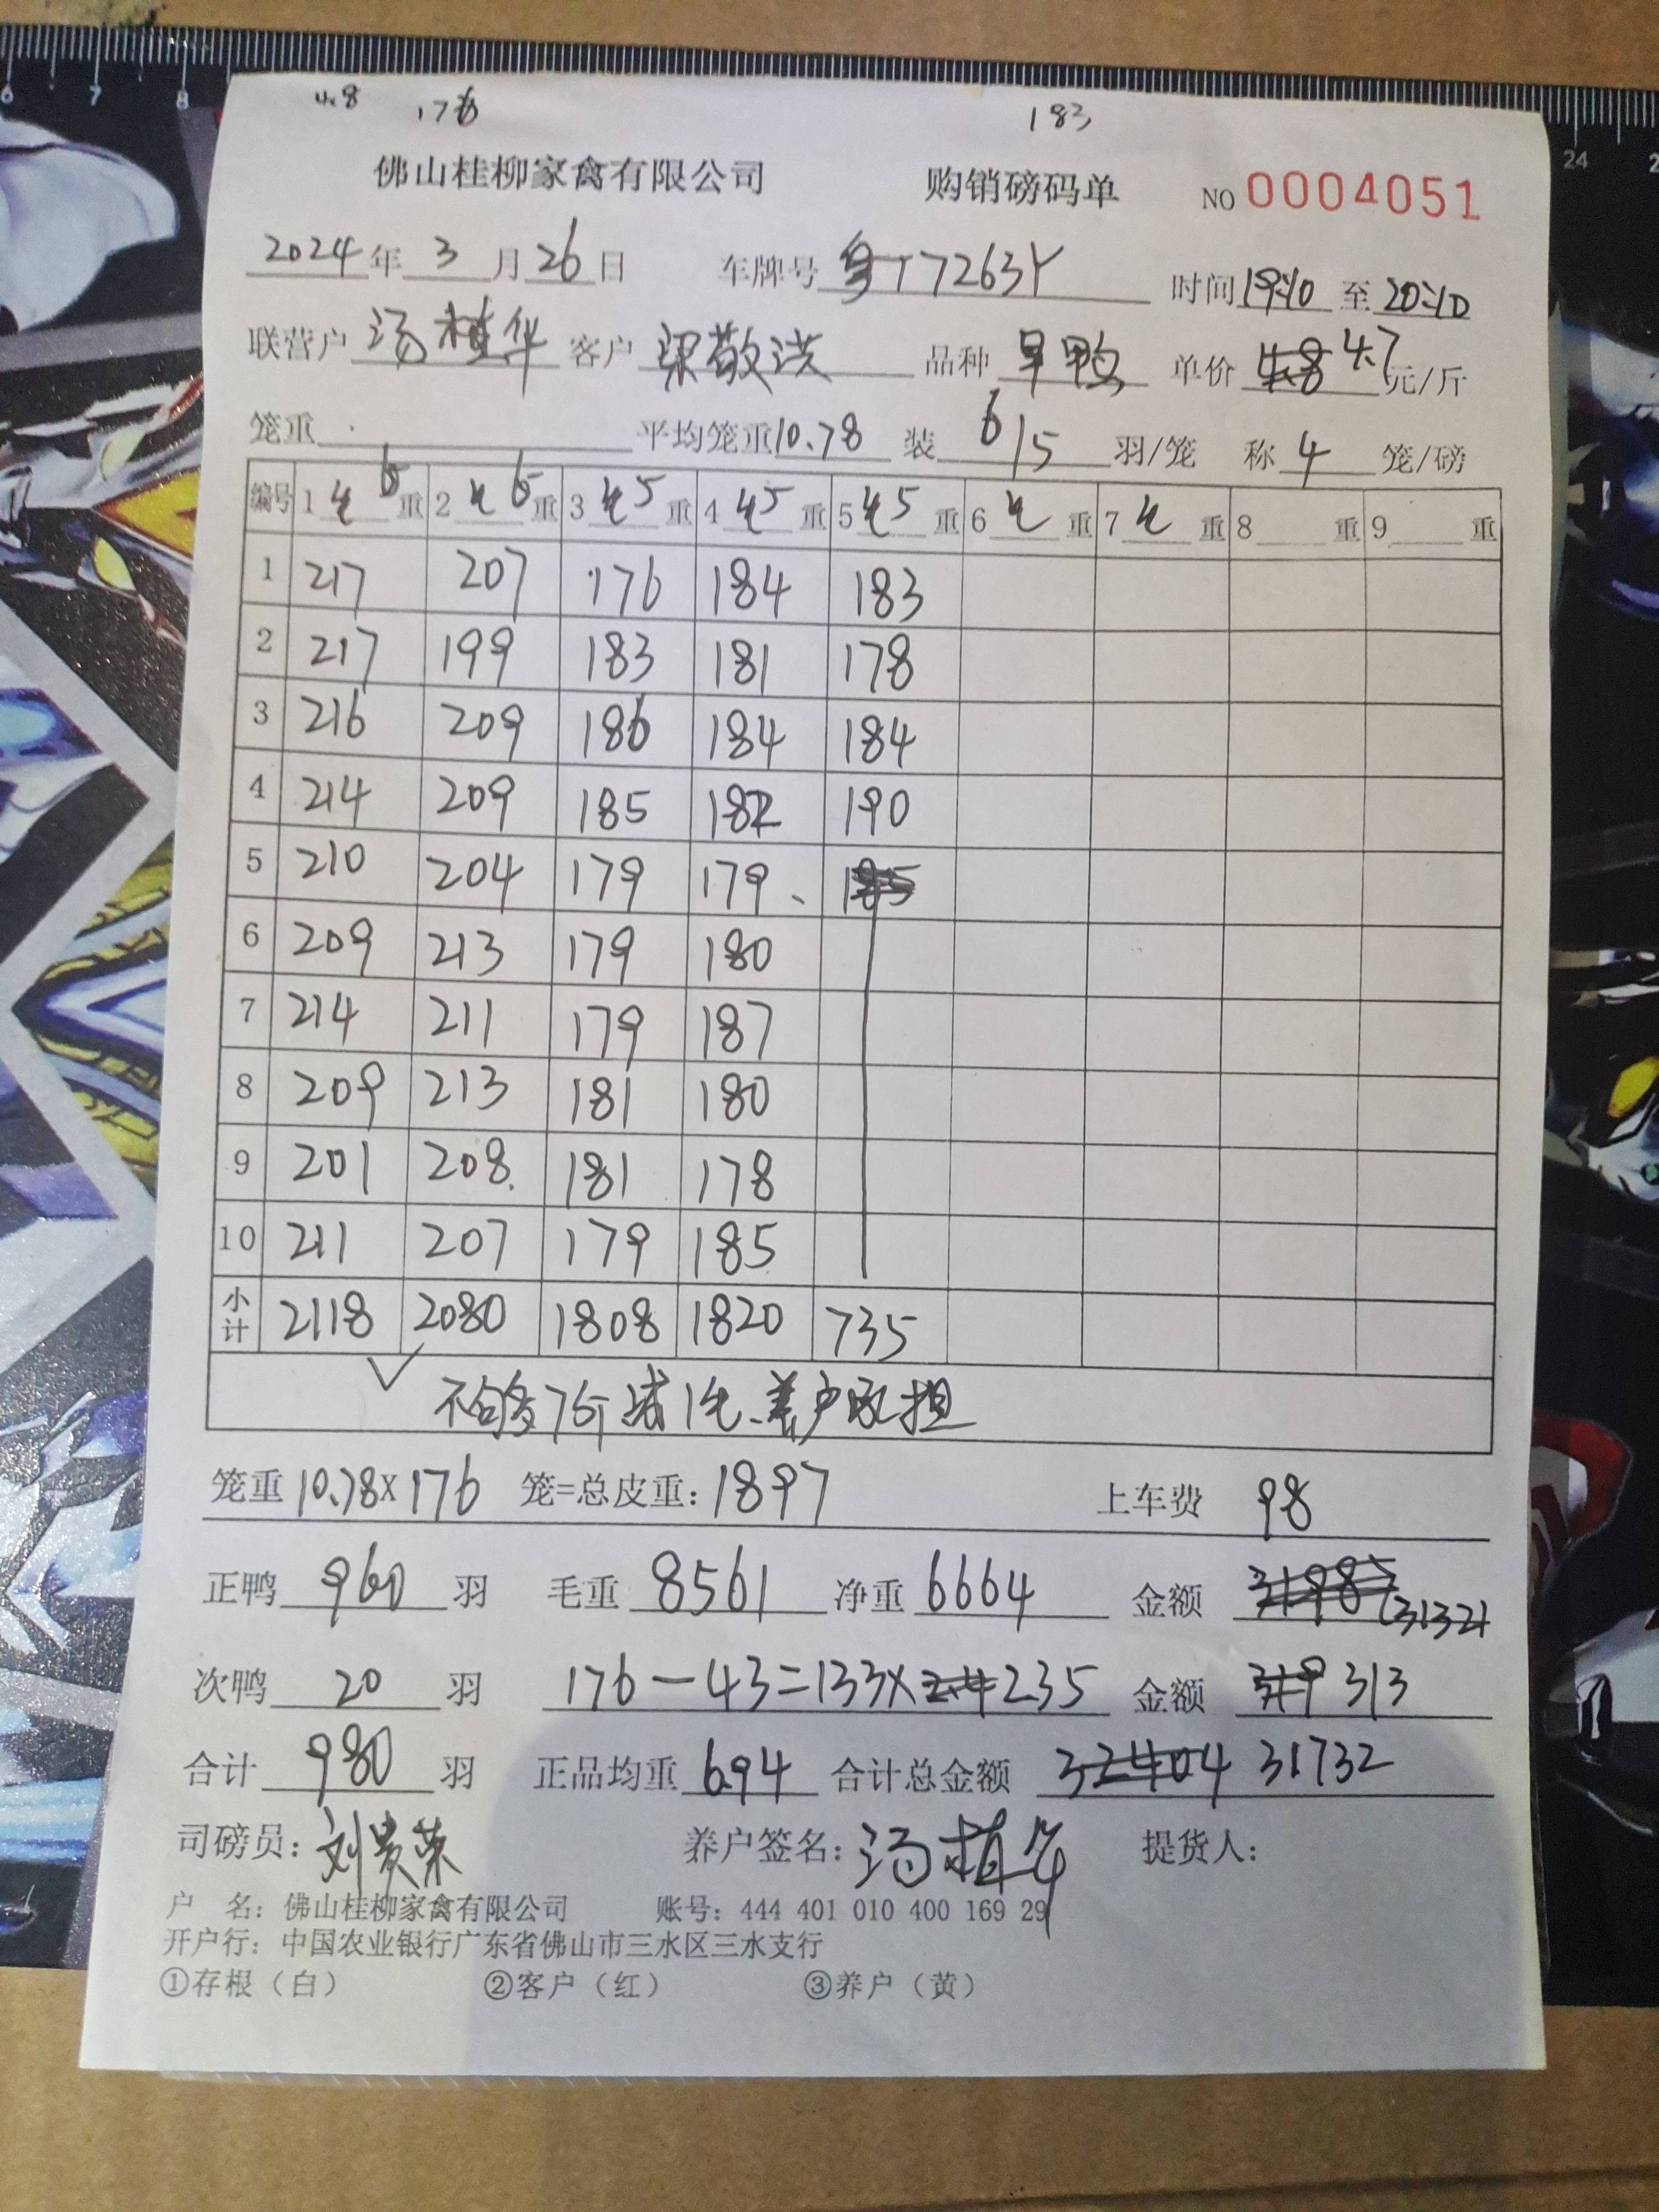 4.8 176 183
佛山桂柳家禽有限公司 购销磅码单 NO 0004051
2024年3月26日 车牌号 粤T7263Y 时间19:10至20:10
联营户 汤植华 客户 梁敬洪 品种 旱鸭 单价 4.8 4.7元/斤
笼重 平均笼重10.78 装 6/5 羽/笼 称 4 笼/磅
编号 1 6重 2 6重 3 5重 4 5重 5 5重 6 重 7 重 8 重 9 重
1 217 207 176 184 183
2 217 199 183 181 178
3 216 209 186 184 184
4 214 209 185 182 190
5 210 204 179 179 185
6 209 213 179 180
7 214 211 179 187
8 209 213 181 180
9 201 208 181 178
10 211 207 179 185
小计 2118 2080 1808 1820 735
不够7斤减1毛、养户承担
笼重10.78×176 笼=总皮重:1897 上车费 98
正鸭 960 羽 毛重 8561 净重 6664 金额 31987 31321
次鸭 20 羽 176-43=133×2.4 2.35 金额 319 313
合计 980 羽 正品均重 6.94 合计总金额 32404 31732
司磅员: 刘贵荣 养户签名: 汤植华 提货人:
户 名: 佛山桂柳家禽有限公司 账号: 444 401 010 400 169 29
开户行: 中国农业银行广东省佛山市三水区三水支行
①存根(白) ②客户(红) ③养户(黄)